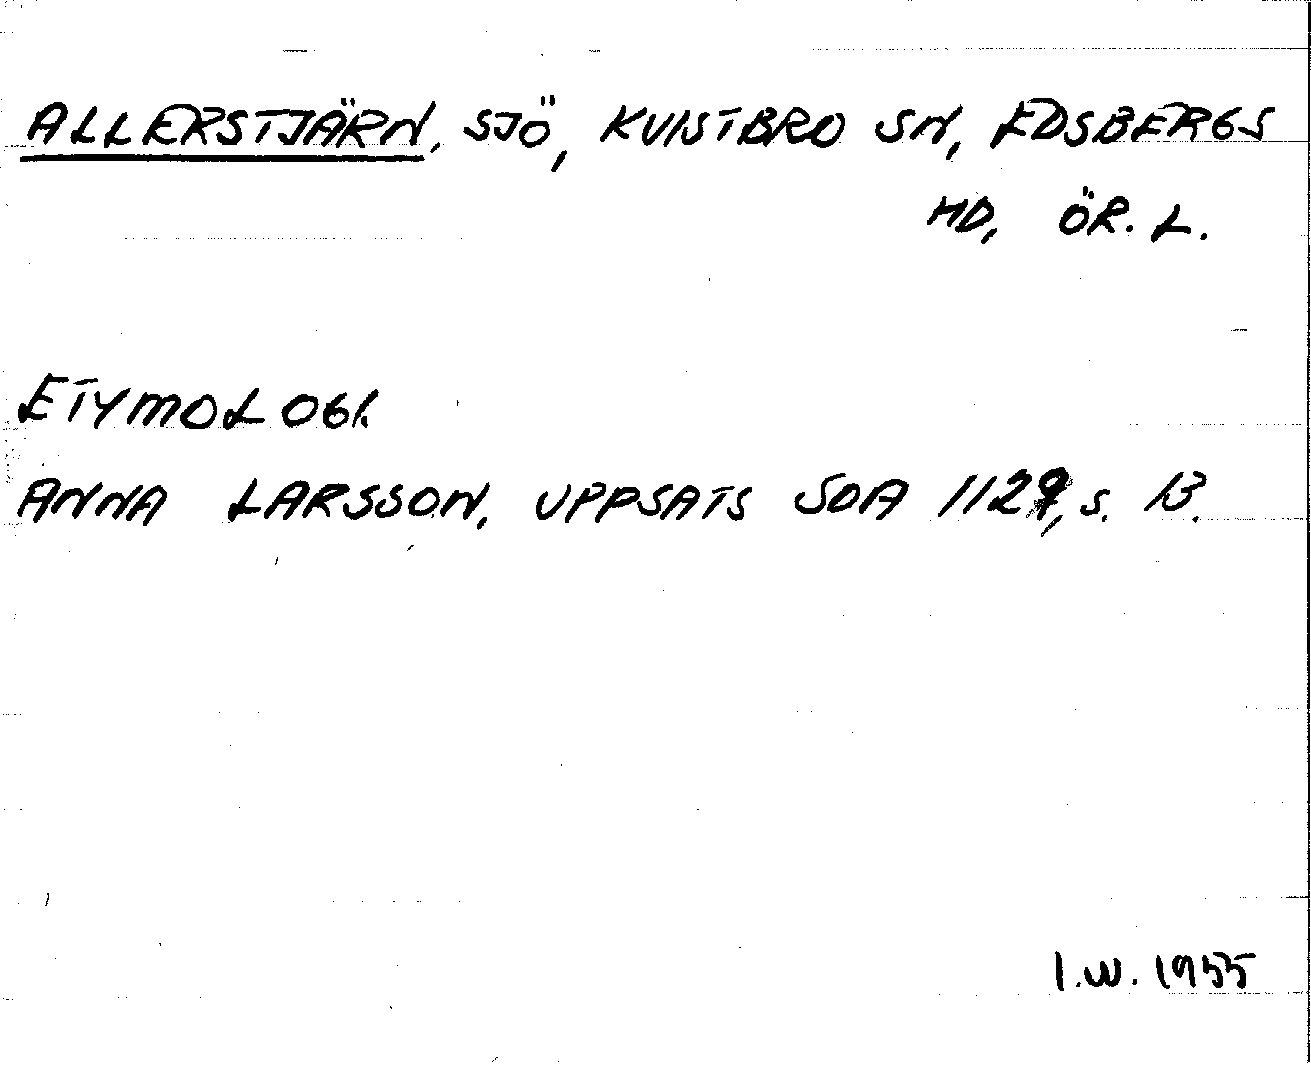 ALLERSTJÄRN, SJÖ, KVISTBRO SN, EDSBERGS
HD, ÖR. L.
ETYMOLOGI.
ANNA LARSSON, UPPSATS SOA 1129, S. 13.
I.W. 1955